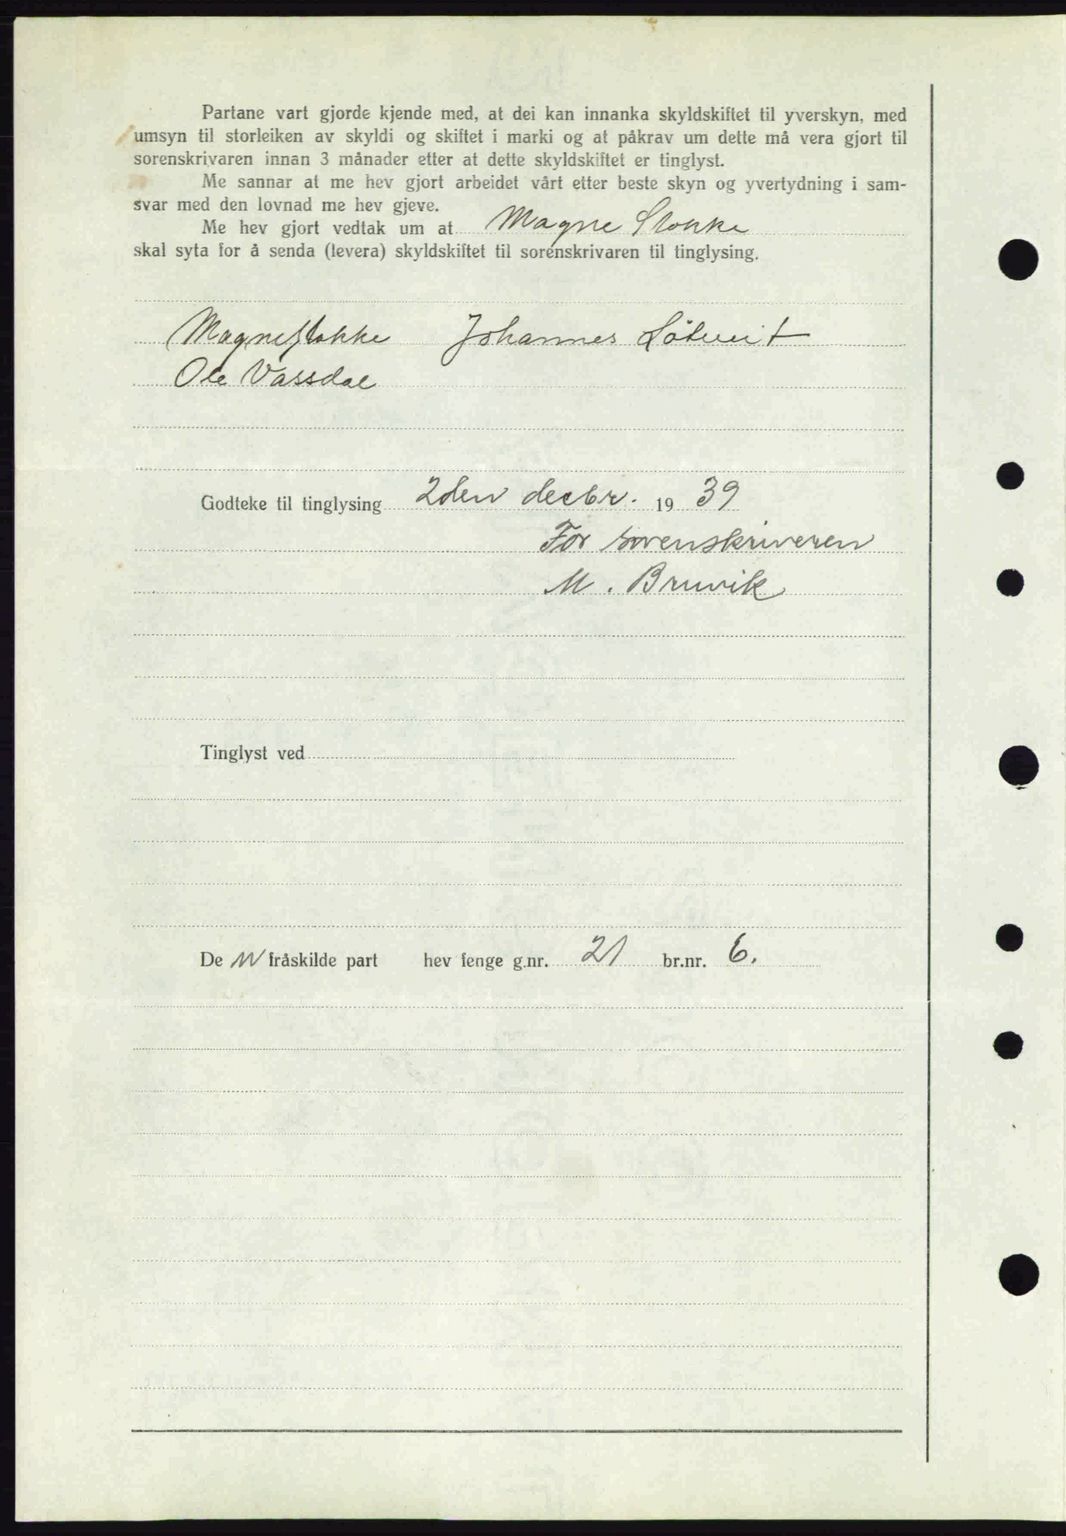 Partane vart gjorde kjende med, at dei kan innanka skyldskiftet til yverskyn, med
umsyn til storleiken av skyldi og skiftet i marki og at påkrav um dette må vera gjort til
sorenskrivaren innan 3 månader etter at dette skyldskiftet er tinglyst.
Me sannar at me hev gjort arbeidet vårt etter beste skyn og yvertydning i sam-
svar med den lovnad me hev gjeve.
Me hev gjort vedtak um at Magne Stokke
skal syta for å senda (levera) skyldskiftet til sorenskrivaren til tinglysing.
Magne Stokke Johannes Løtveit
Ole Vassdal
Godteke til tinglysing 2den decbr. 19 39
For sorenskriveren
M. Bruvik
Tinglyst ved
De n fråskilde part hev fenge g.nr. 21 br.nr. 6.